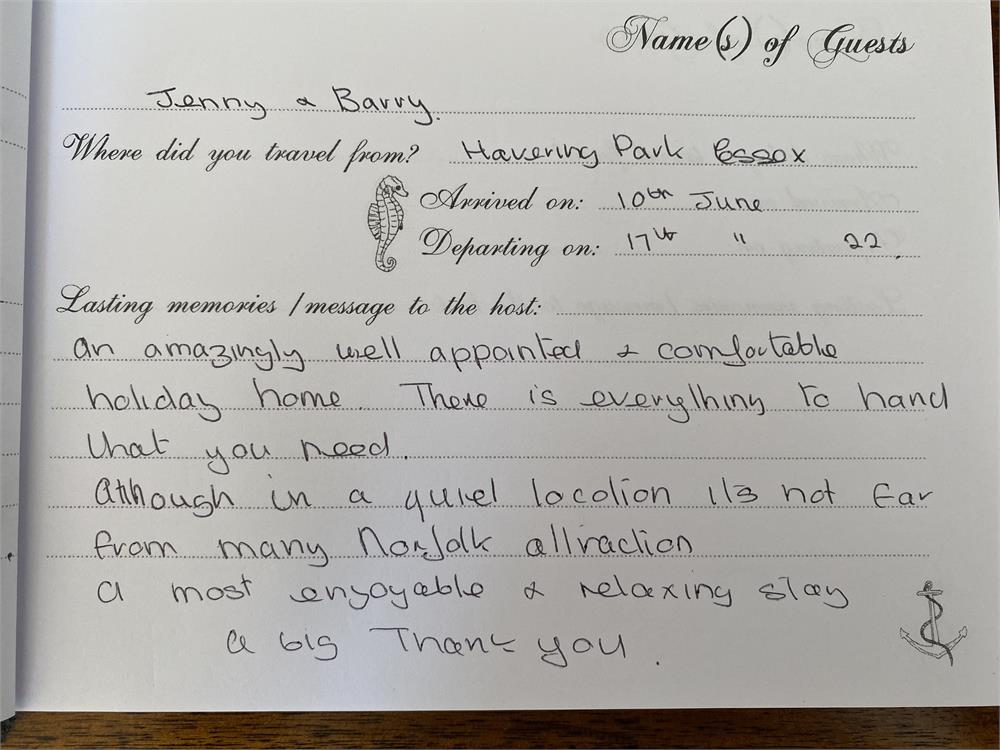 Name(s) of Guests
Jenny & Barry.
Where did you travel from? Havering Park Essex
Arrived on: 10th June
Departing on: 17th " 22.
Lasting memories / message to the host:
An amazingly well appointed & comfortable
holiday home. There is everything to hand
that you need.
Although in a quiet location its not far
from many Norfolk attraction
a most enjoyable & relaxing stay
a big Thank you.